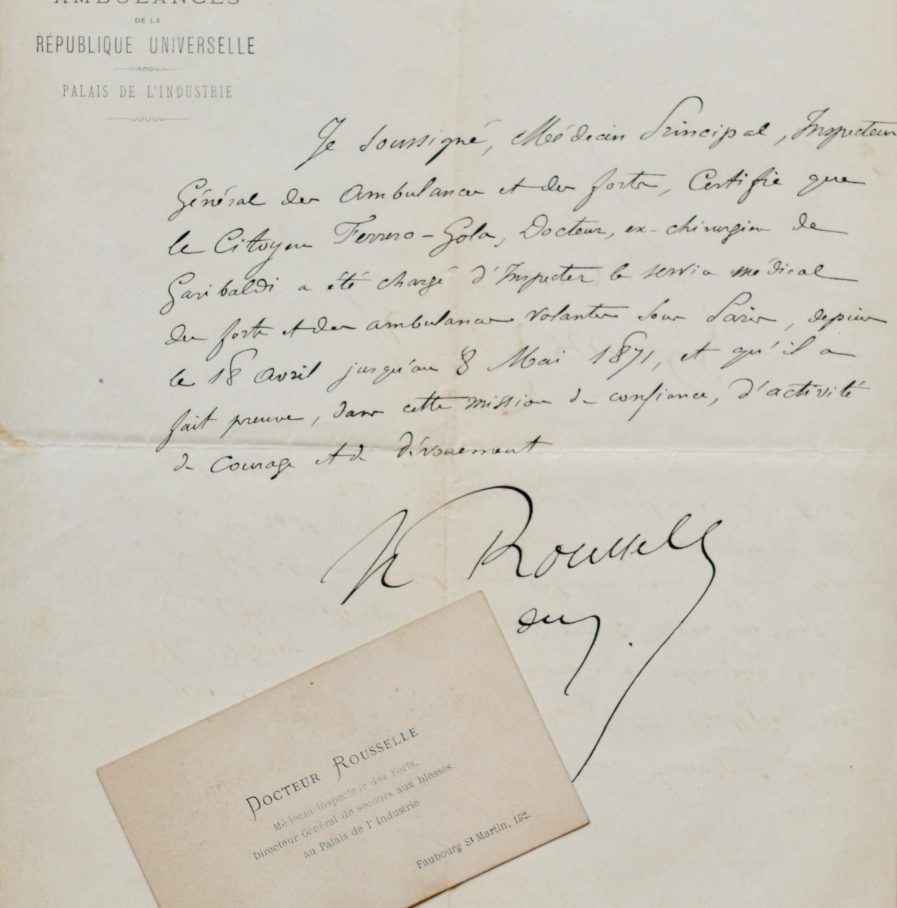 AMBULANCES
DE LA
RÉPUBLIQUE UNIVERSELLE
PALAIS DE L'INDUSTRIE
Je soussigné, Médecin Principal, Inspecteur
Général des Ambulances et des forts, Certifie que
le Citoyen Ferrero-Gola, Docteur, ex-chirurgien de
Garibaldi a été chargé d'Inspecter le service médical
des forts et des ambulances volantes sous Paris, depuis
le 18 avril jusqu'au 8 Mai 1871, et qu'il a
fait preuve, dans cette mission de confiance, d'activité
de courage et de dévouement
Rousselle
DOCTEUR ROUSSELLE
Médecin Inspecteur des Forts.
Directeur Général de secours aux blessés
au Palais de l'Industrie
Faubourg St Martin, 152.